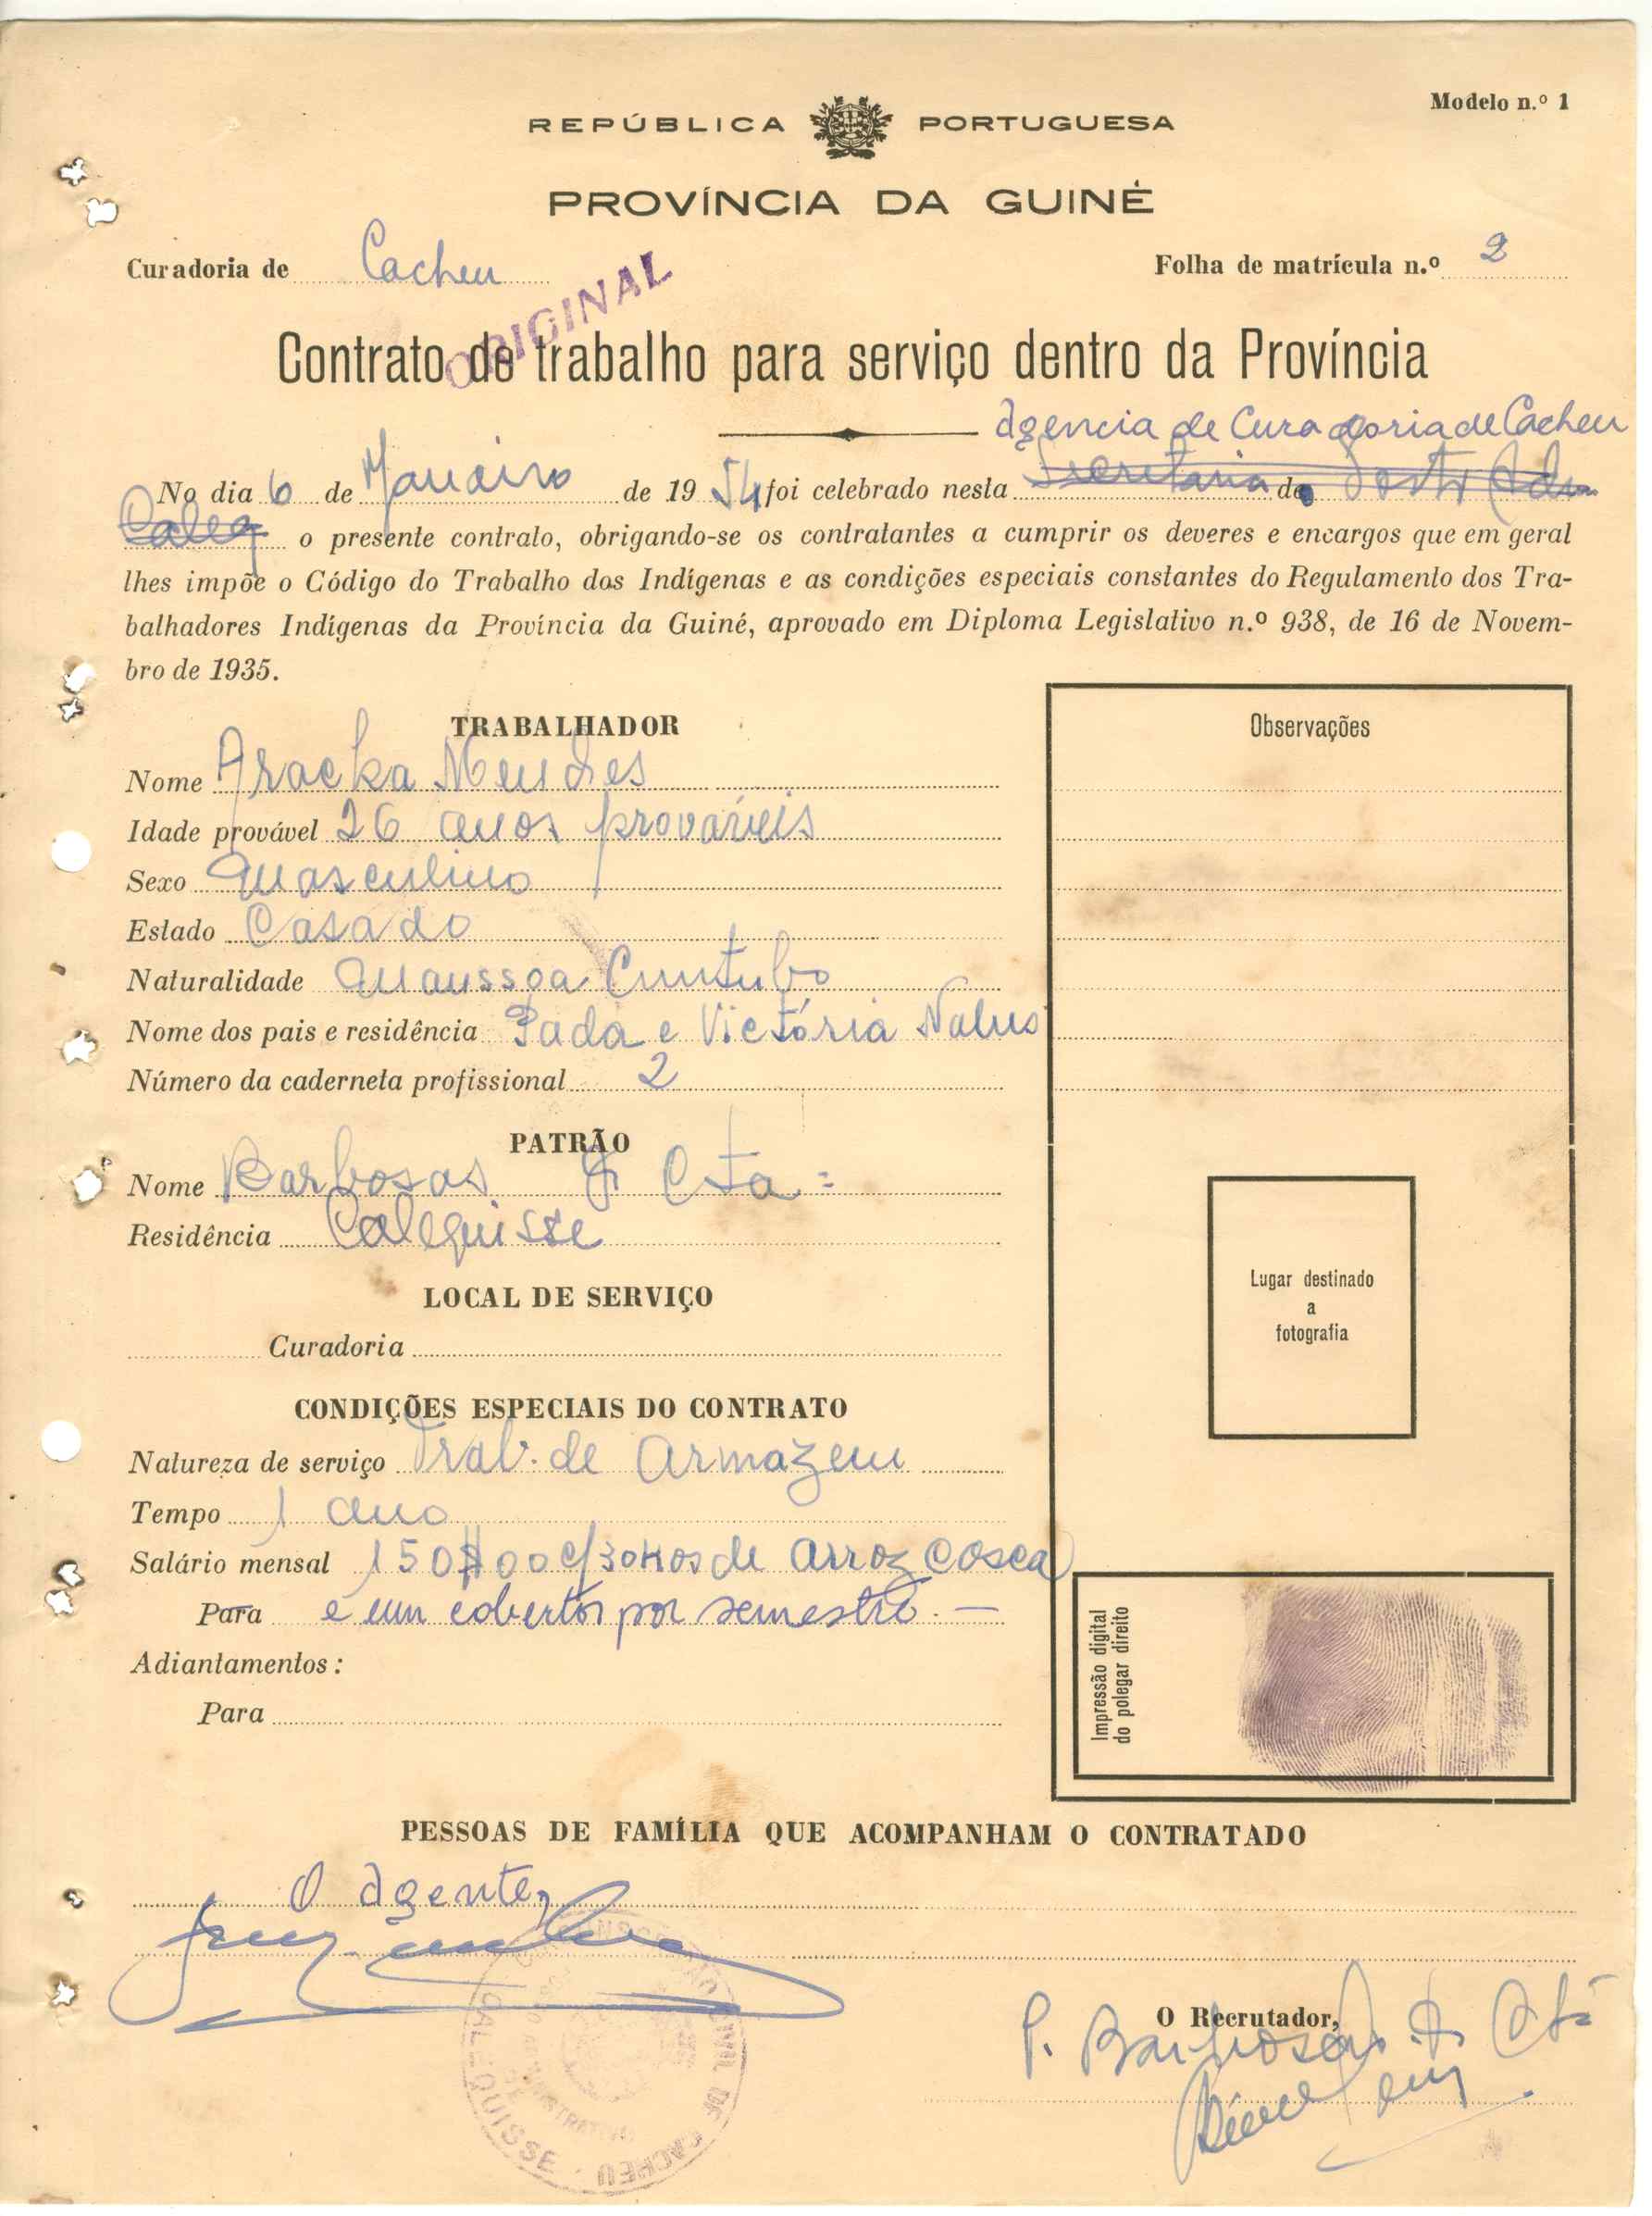 Modelo n.º 1
REPÚBLICA PORTUGUESA
PROVÍNCIA DA GUINÉ
Curadoria de Cacheu
Folha de matrícula n.º 2
ORIGINAL
Contrato de trabalho para serviço dentro da Província
Agencia de Curadoria de Cacheu
No dia 6 de Janeiro de 1954 foi celebrado nesta Secretaria do Posto Adm
Caleq o presente contrato, obrigando-se os contratantes a cumprir os deveres e encargos que em geral
lhes impõe o Código do Trabalho dos Indígenas e as condições especiais constantes do Regulamento dos Tra-
balhadores Indígenas da Província da Guiné, aprovado em Diploma Legislativo n.º 938, de 16 de Novem-
bro de 1935.
TRABALHADOR
Nome Aracka Mendes
Idade provável 26 anos prováveis
Sexo Masculino
Estado Casado
Naturalidade
Nome dos pais e residência Pada e Victória Nalus
Número da caderneta profissional 2
PATRÃO
Nome Barbosas & Cta
Residência Calequisse
LOCAL DE SERVIÇO
Curadoria
CONDIÇÕES ESPECIAIS DO CONTRATO
Natureza de serviço Trab. de armazem
Tempo 1 ano
Salário mensal 150$00 c/30Kos de arroz casca
Para e um cobertor por semestre. —
Adiantamentos :
Para
Observações
Lugar destinado
a
fotografia
Impressão digital
do polegar direito
PESSOAS DE FAMÍLIA QUE ACOMPANHAM O CONTRATADO
O Agente,
O Recrutador,
P. Barbosas & Cta
CACHEU · CALEQUISSE